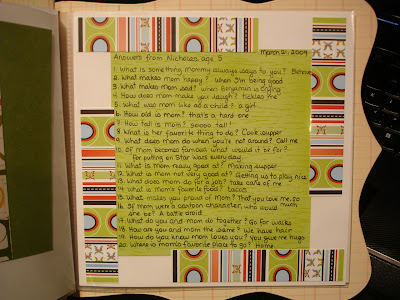 March 21, 2009
Answers from Nicholas age 5
1. What is something mommy always says to you? Behave
2. What makes mom happy? When I'm being good
3. What makes mom sad? When Benjamin is crying
4. How does mom make you laugh? tickles me
5. What was mom like as a child? a girl
6. How old is mom? that's a hard one
7. How tall is mom? soooo tall!
8. What is her favorite thing to do? Cook supper
9. What does mom do when you're not around? Call me
10. If mom becomes famous what would it be for?
for putting on Star Wars every day.
11. What is mom really good at? Making supper
12. What is mom not very good at? Getting us to play nice
13. What does mom do for a job? take care of me
14. What is mom's favorite food? tacos
15. What makes you proud of mom? That you love me, to
16. If mom were a cartoon character, who would
she be? A battle droid
17. What do you and mom do together? Go for walks
18. How are you and mom the same? We have hair
19. How do you know mom loves you? You give me hugs
20. Where is mom's favorite place to go? Home